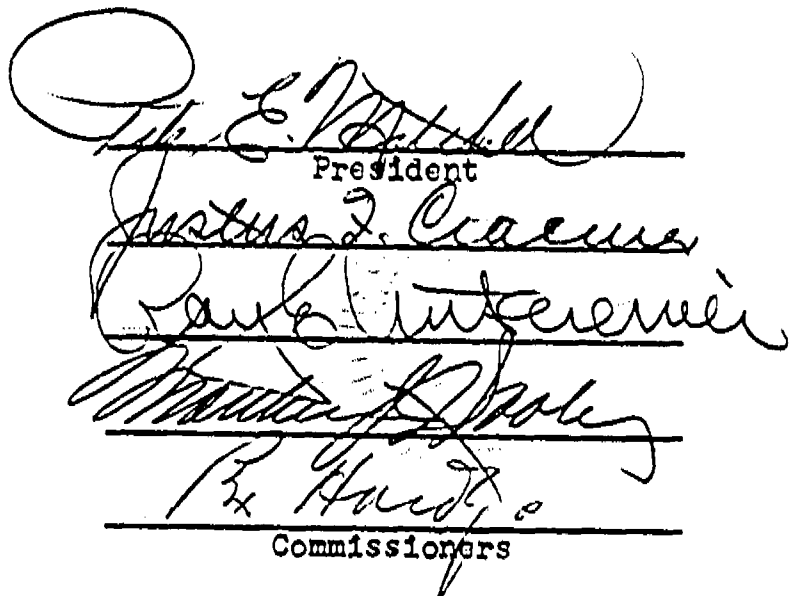 Peter E. Mitchell
President
Justus F. Craemer
Untereiner
Matthew J. Dooley
Rex Hardy
Commissioners